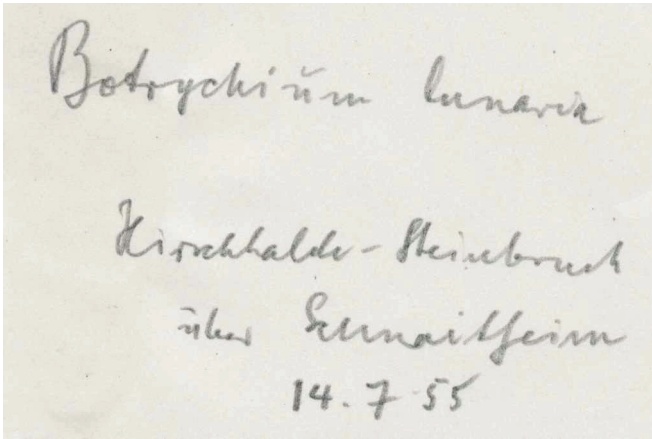 Botrychium lunaria
Hirschhalde-Steinbruch
über Schnaitheim
14.7 55